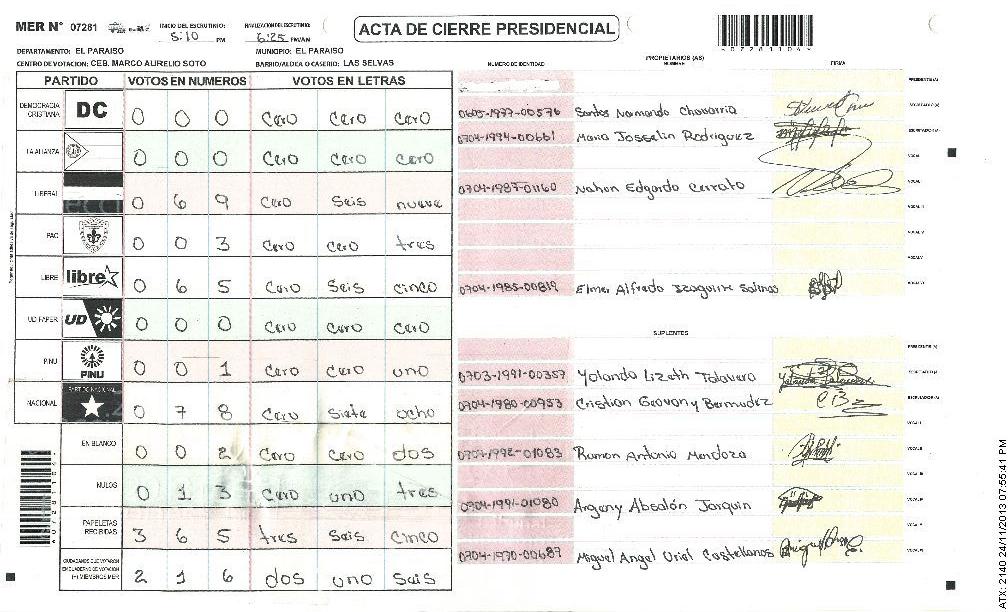 MER N° 07281 INICIO DEL ESCRUTINIO: 5:10 PM FINALIZACION DEL ESCRUTINIO: 6:25 PM/AM
ACTA DE CIERRE PRESIDENCIAL
DEPARTAMENTO: EL PARAISO MUNICIPIO: EL PARAISO
CENTRO DE VOTACION: CEB. MARCO AURELIO SOTO BARRIO/ALDEA O CASERIO: LAS SELVAS
PARTIDO VOTOS EN NUMEROS VOTOS EN LETRAS
DEMOCRACIA CRISTIANA DC 0 0 0 Cero Cero Cero
LA ALIANZA 0 0 0 Cero Cero Cero
LIBERAL 0 6 9 Cero Seis nueve
PAC 0 0 3 Cero Cero tres
LIBRE libre 0 6 5 Cero Seis cinco
UD FAPER UD 0 0 0 Cero Cero Cero
PINU PINU 0 0 1 Cero Cero uno
NACIONAL PARTIDO NACIONAL 0 7 8 Cero Siete ocho
EN BLANCO 0 0 2 Cero Cero dos
NULOS 0 1 3 Cero uno tres
PAPELETAS RECIBIDAS 3 6 5 tres Seis cinco
CIUDADANOS QUE VOTARON EN CUADERNO DE VOTACION (+) MIEMBROS MER 2 1 6 dos uno Seis
PROPIETARIOS (AS)
NUMERO DE IDENTIDAD NOMBRE FIRMA
PRESIDENTE(A)
0605-1977-00576 Santos Normando Chavarria SECRETARIO(A)
0704-1994-00661 Maria Josselin Rodriguez ESCRUTADOR(A)
VOCAL I
0704-1987-01160 Nahon Edgardo Cerrato VOCAL II
VOCAL III
VOCAL IV
VOCAL V
0704-1985-00819 Elmer Alfredo Izaguirre Salinas VOCAL VI
SUPLENTES
PRESIDENTE(A)
0703-1991-00357 Yolanda Lizeth Talavera SECRETARIO(A)
0704-1980-00953 Cristian Geovany Bermudez ESCRUTADOR(A)
VOCAL I
0704-1992-01083 Ramon Antonio Mendoza VOCAL II
VOCAL III
0704-1991-01080 Argeny Absalón Joaquin VOCAL IV
VOCAL V
0704-1970-00687 Miguel Angel Urial Castellanos VOCAL VI
ATX: 2140 24/11/2013 07:55:41 PM